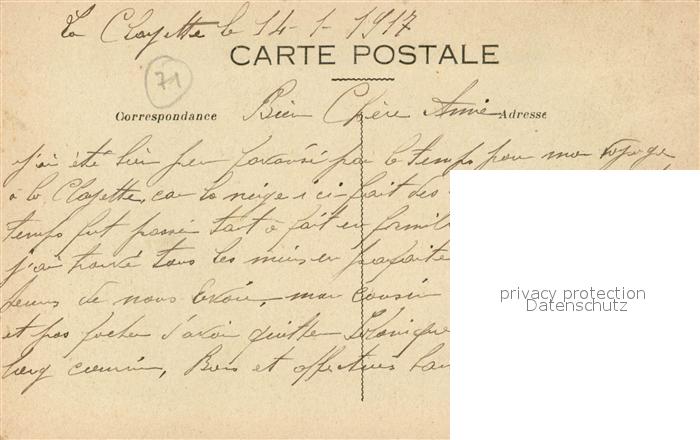 La Clayette le 14-1-1917
CARTE POSTALE
71
Correspondance Bien Chère Amie Adresse
j'ai été bien peu favorisé par le temps pour mon voyage
à la Clayette, car la neige ici fait des
temps fut passé tout à fait en famil
j'ai trouvé tous les miens en parfaite
de nous avoir, mon cousin
et pas fâché d'avoir quitté Salonique
Bons et affectueux bai
privacy protection
Datenschutz